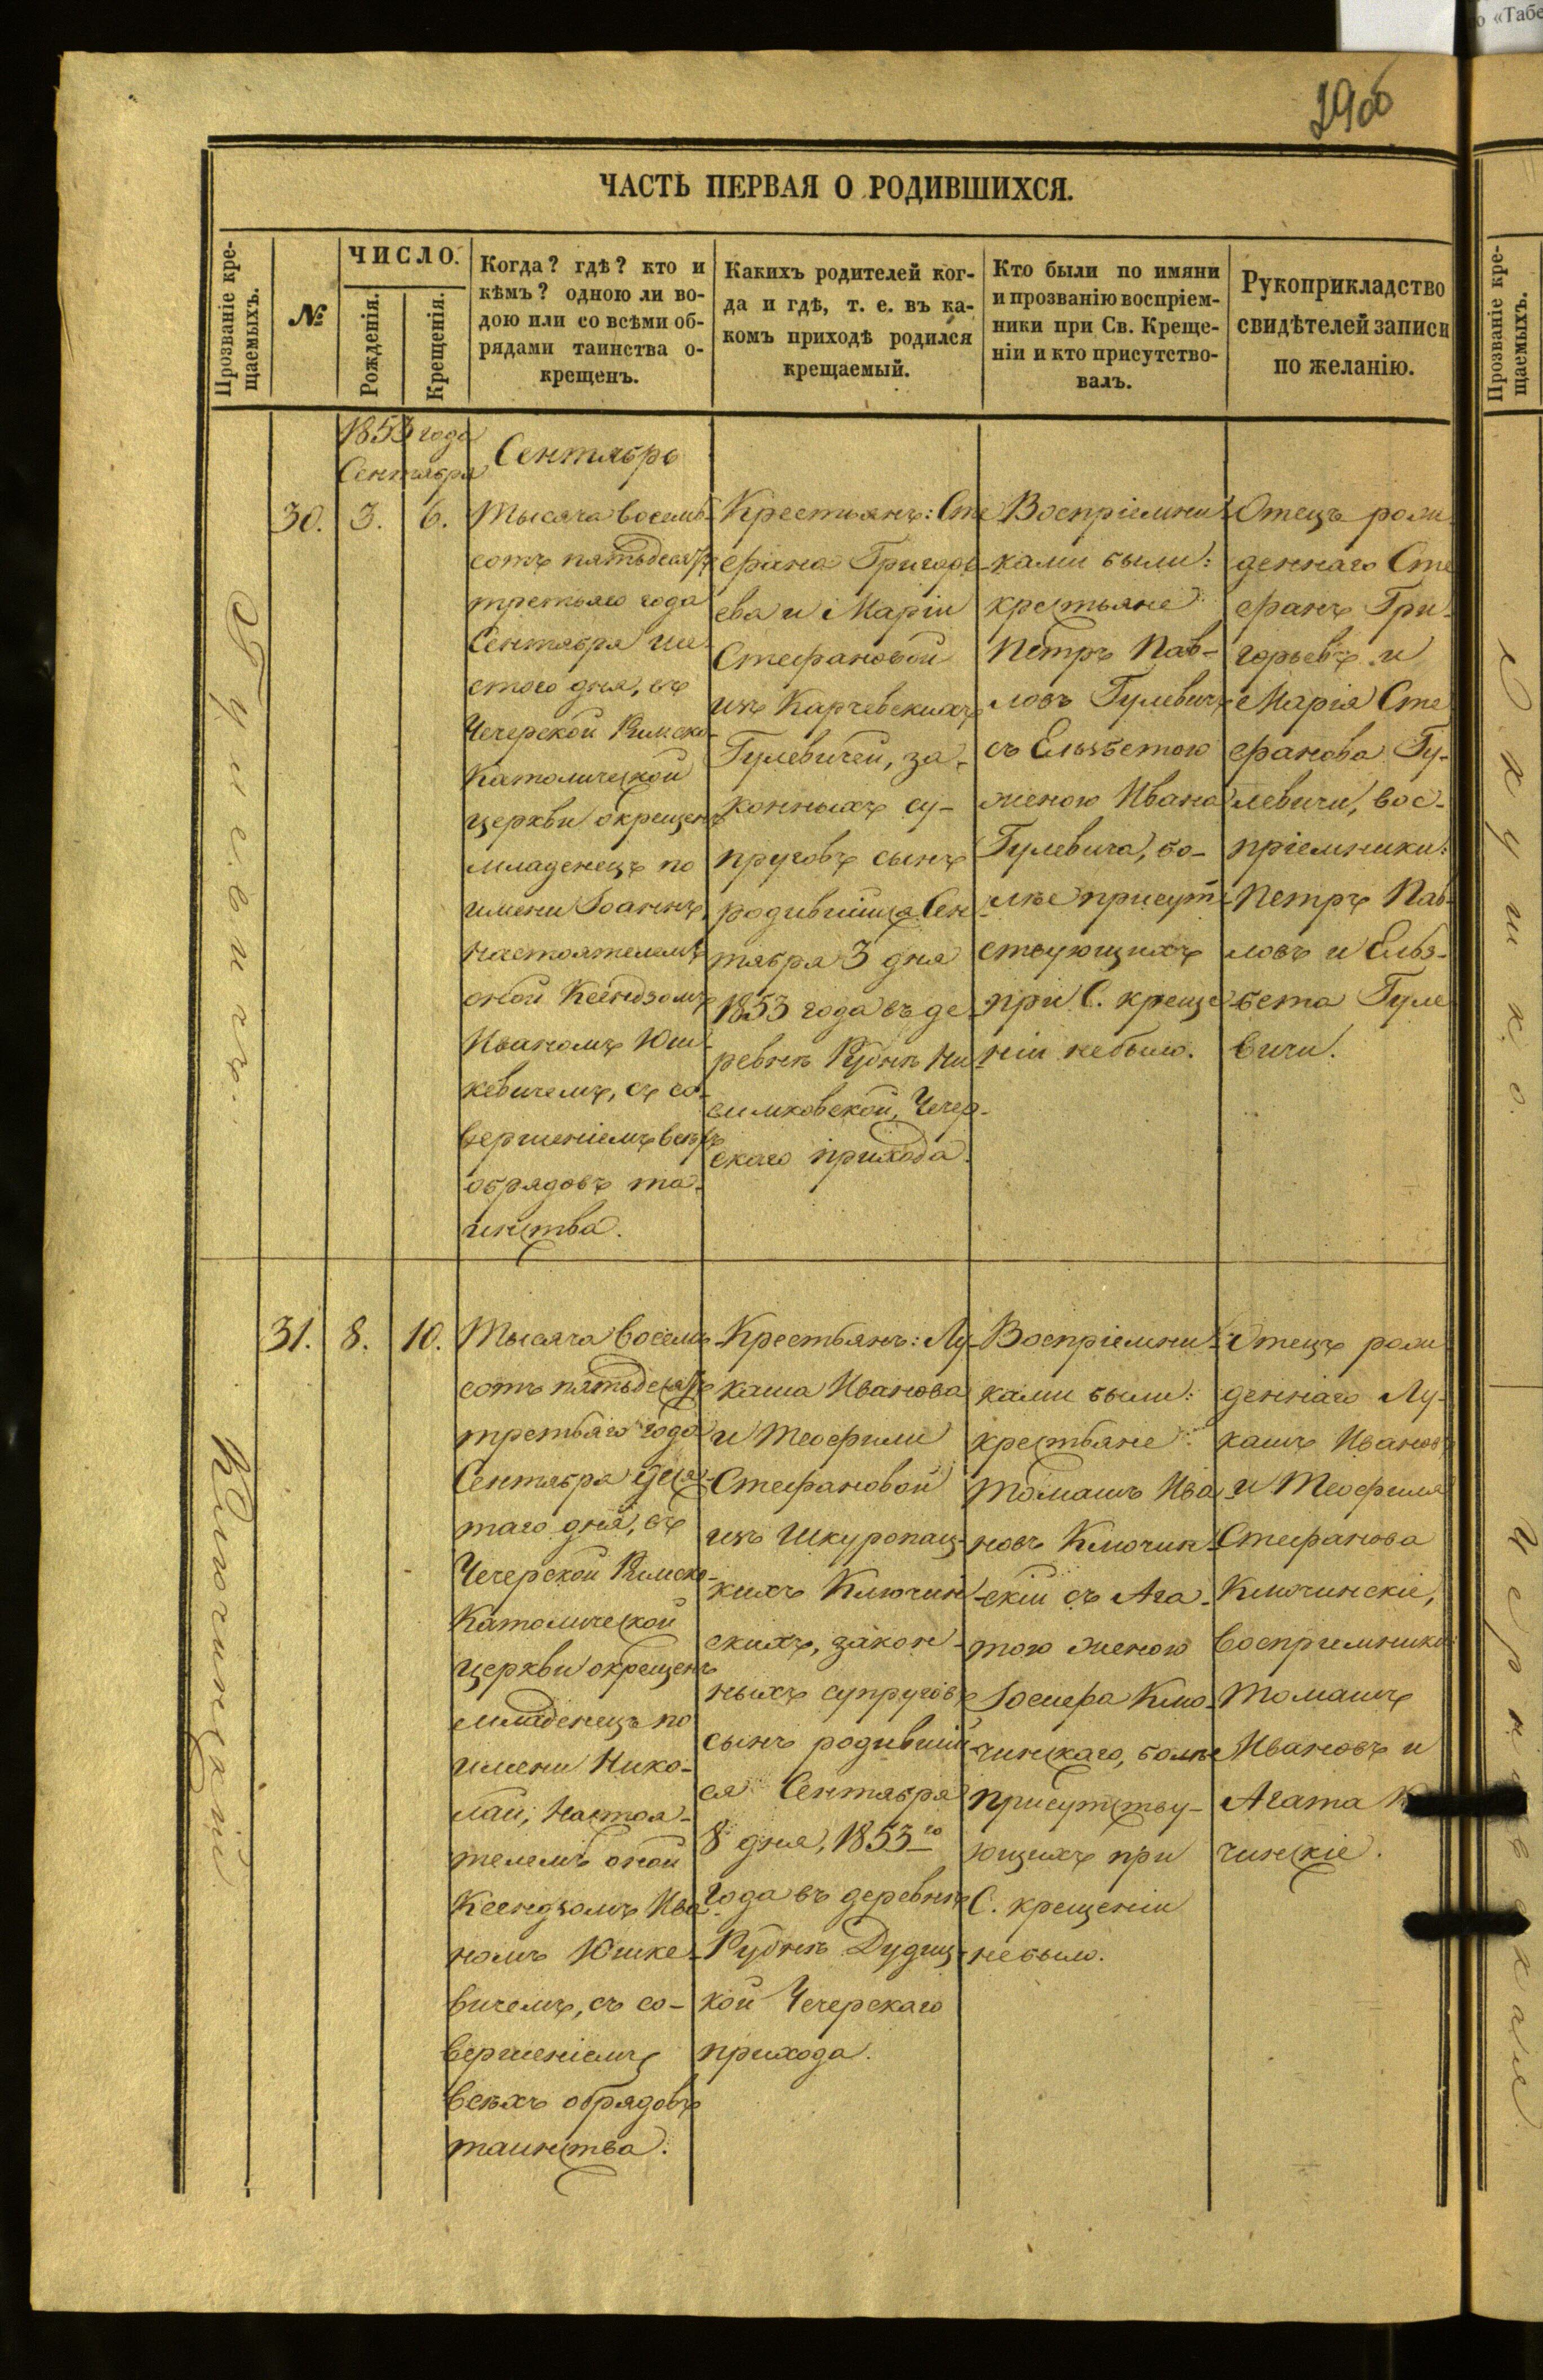 29об
ЧАСТЬ ПЕРВАЯ О РОДИВШИХСЯ.
Прозваніе кре-
щаемыхъ.
№
ЧИСЛО.
Рожденія.
Крещенія.
Когда? гдѣ? кто и
кѣмъ? одною ли во-
дою или со всѣми об-
рядами таинства о-
крещенъ.
Какихъ родителей ког-
да и гдѣ, т. е. въ ка-
комъ приходѣ родился
крещаемый.
Кто были по имяни
и прозванію воспріем-
ники при Св. Креще-
ніи и кто присутство-
валъ.
Рукоприкладство
свидѣтелей записи
по желанію.
1853 года
Сентября
Сентябрь
Гулевичъ.
30.
3.
6.
Тысяча восемь-
сотъ пятьдесятъ
третьяго года
Сентября ше-
стого дня, въ
Чечерской Римско-
Католической
церкви окрещенъ
младенецъ по
имени Іоаннъ,
настоятелемъ
оной Ксендзомъ
Иваномъ Юш-
кевичемъ, съ со-
вершеніемъ всѣхъ
обрядовъ та-
инства.
Крестьянъ: Сте-
фана Григорь-
ева и Маріи
Стефановой
изъ Карчевскихъ
Гулевичей, за-
конныхъ су-
пруговъ сынъ
родившійся Сен-
тября 3 дня
1853 года въ де-
ревнѣ Руднѣ Ни-
симковской, Чечер-
скаго прихода.
Воспріемни-
ками были:
крестьяне
Петръ Пав-
ловъ Гулевичъ
съ Ельзбетою
женою Ивана
Гулевича, бо-
лѣе присут-
ствующихъ
при С. креще-
ніи небыло.
Отецъ рож-
деннаго Сте
фанъ Гри-
горьевъ и
Марія Сте
фанова Гу-
левичи, вос-
пріемники:
Петръ Пав-
ловъ и Ельз-
бета Гуле
вичи.
Ключинскій
31.
8.
10.
Тысяча восемь
сотъ пятьдесятъ
третьяго года
Сентября деся-
таго дня, въ
Чечерской Римско-
Католической
церкви окрещенъ
младенецъ по
имени Нико-
лай, Настоя-
телемъ оной
Ксендзомъ Ива-
номъ Юшке-
вичемъ, съ со-
вершеніемъ
всѣхъ обрядовъ
таинства.
Крестьянъ: Лу-
каша Иванова
и Теофили
Стефановой
изъ Шкуропац-
кихъ Ключин-
скихъ, закон-
ныхъ супруговъ
сынъ родившій-
ся Сентября
8 дня, 1853го
года въ деревнѣ
Руднѣ Дудиц-
кой Чечерскаго
прихода.
Воспріемни-
ками были:
крестьяне:
Томашъ Ива-
новъ Ключин-
скій съ Ага-
тою женою
Іосифа Клю-
чинскаго, болѣе
присутству-
ющихъ при
С. крещеніи
небыло.
Отецъ рож-
деннаго Лу-
кашъ Ивановъ
и Теофиля
Стефанова
Ключинскіе,
воспріемники:
Томашъ
Ивановъ и
Агата К
чинскіе.
Прозваніе кре-
щаемыхъ.